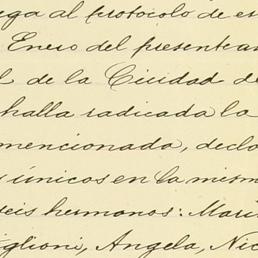 ega al protocolo de es
Enero del presente an
l de la Ciudad de
halla radicada la
mencionada, decla
únicos en la mism
seis hermonos: Marí
iglioni, Angela, Nic